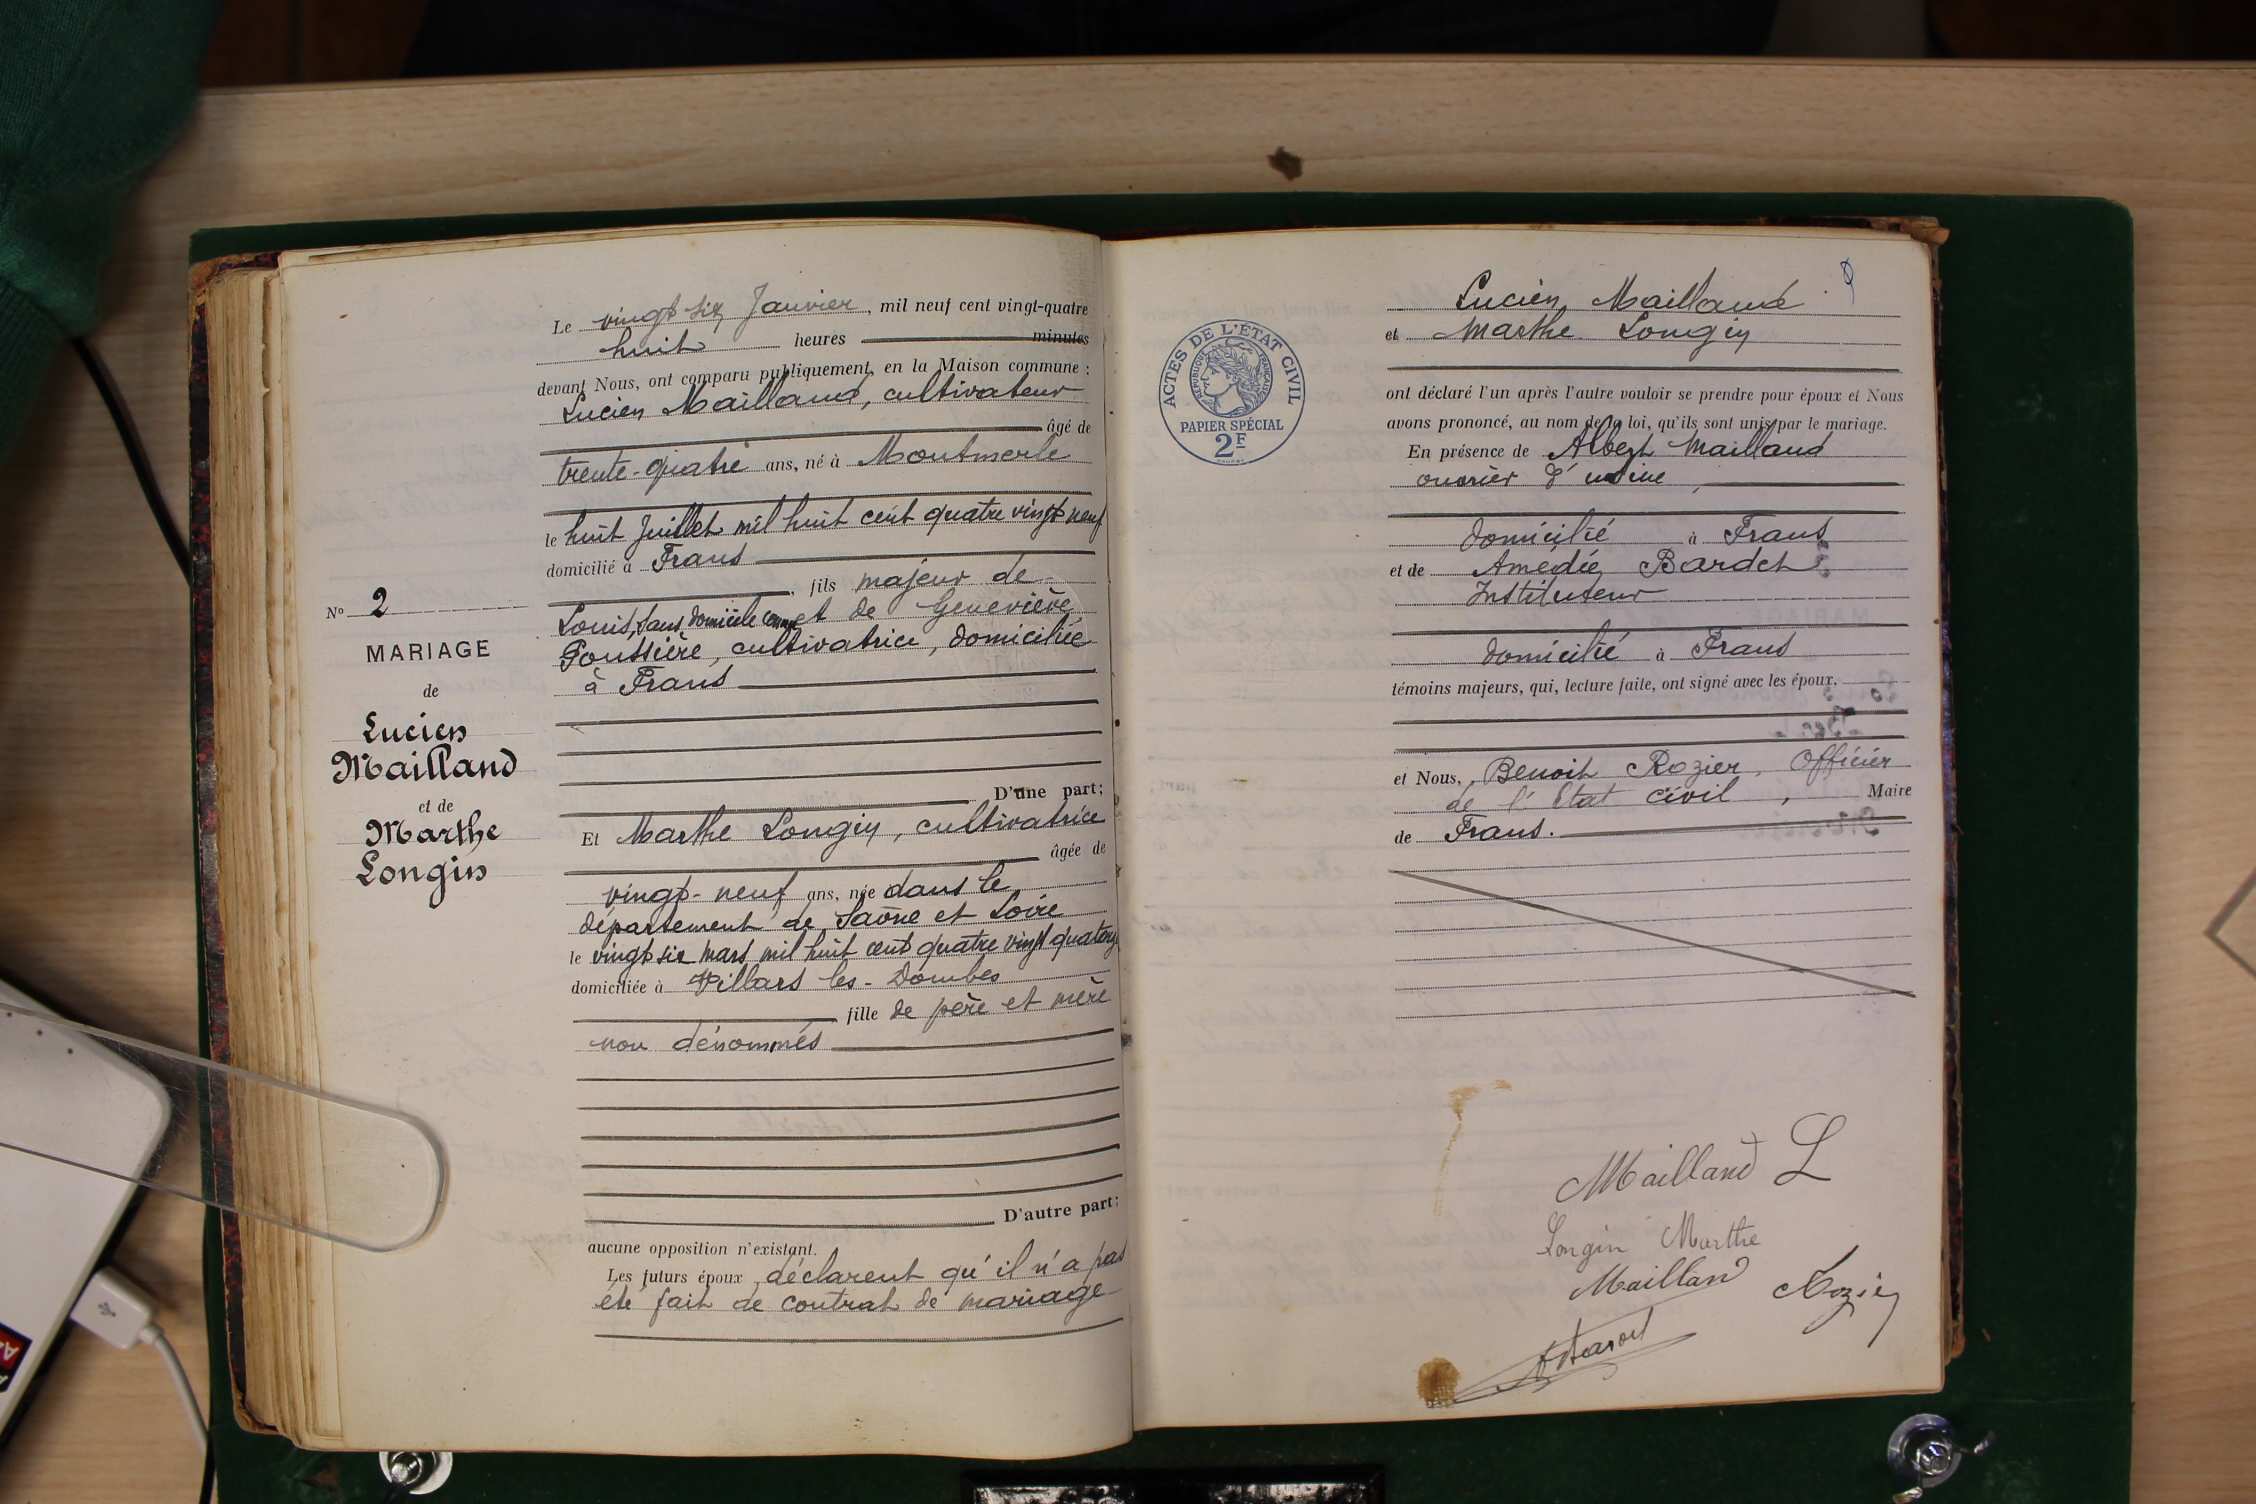 N° 2
MARIAGE
de
Lucien
Mailland
et de
Marthe
Longin
Le vingt six Janvier, mil neuf cent vingt-quatre
huit heures minutes
devant Nous, ont comparu publiquement, en la Maison commune :
Lucien Mailland, cultivateur
âgé de
trente-quatre ans, né à Montmerle
le huit Juillet mil huit cent quatre vingt neuf
domicilié à Frans
, fils majeur de
Louis, sans domicile connu et de Geneviève
Poussière, cultivatrice, domiciliée
à Frans
D'une part;
Et Marthe Longin, cultivatrice
âgée de
vingt-neuf ans, née dans le
département de Saône et Loire
le vingt six mars mil huit cent quatre vingt quatorze
domiciliée à Villars les-Dombes
fille de père et mère
non dénommés
D'autre part;
aucune opposition n'existant.
Les futurs époux déclarent qu'il n'a pas
été fait de contrat de mariage
ACTES DE L'ÉTAT CIVIL
RÉPUBLIQUE FRANÇAISE
PAPIER SPÉCIAL
2F
Lucien Mailland
et Marthe Longin
ont déclaré l'un après l'autre vouloir se prendre pour époux et Nous
avons prononcé, au nom de la loi, qu'ils sont unis par le mariage.
En présence de Albert Mailland
ouvrier d'usine,
domicilié à Frans
et de Amédée Bardet
Instituteur
domicilié à Frans
témoins majeurs, qui, lecture faite, ont signé avec les époux.
et Nous, Benoit Rozier, Officier
de l'Etat civil, Maire
de Frans.
Mailland L
Longin Marthe
Mailland
Rozier